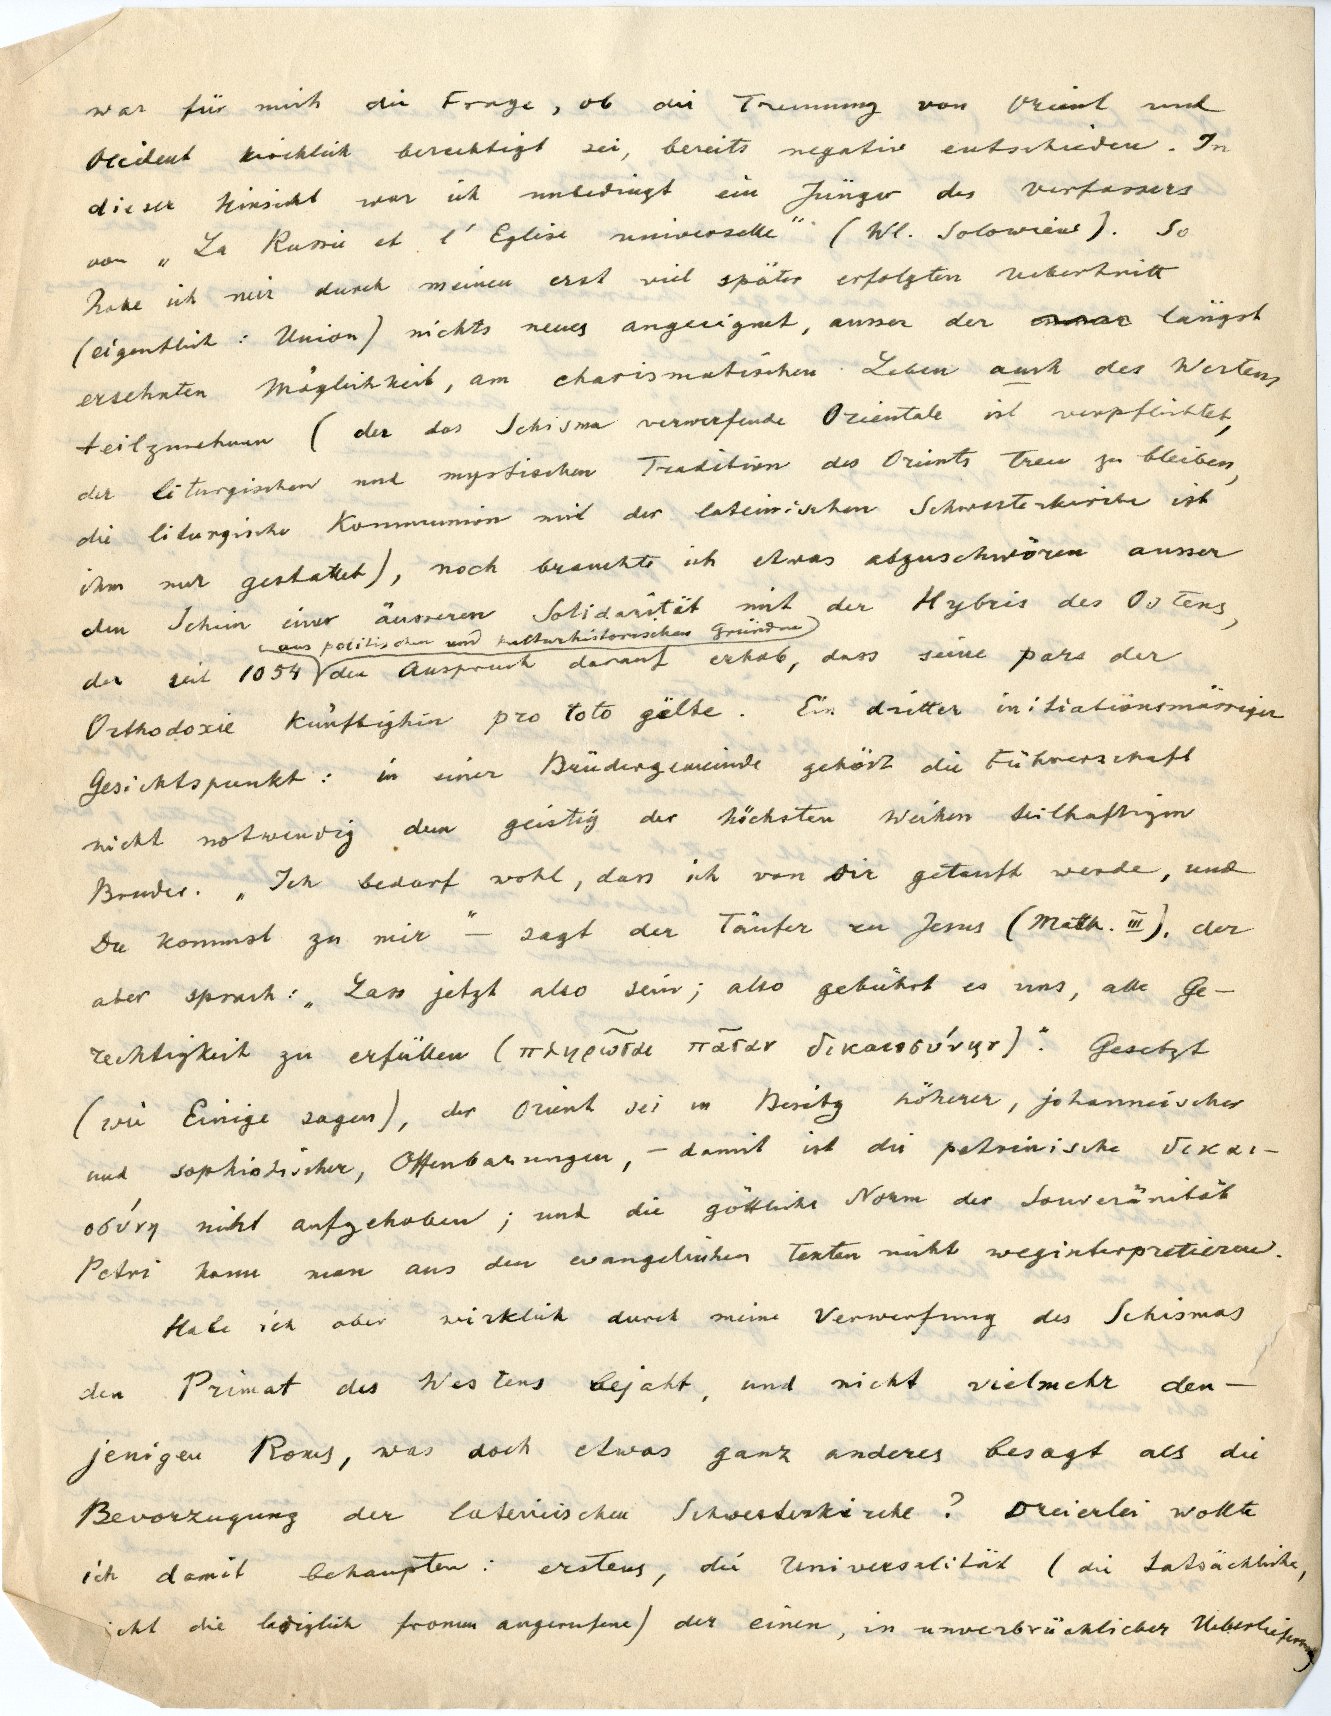 war für mich die Frage, ob die Trennung von Orient und
Occident kirchlich berechtigt sei, bereits negativ entschieden. In
dieser Hinsicht war ich unbedingt ein Jünger des Verfassers
von „La Russie et l'Eglise universelle“ (Wl. Solowiew). So
habe ich mir durch meinen erst viel später erfolgten Uebertritt
(eigentlich: Union) nichts neues angeeignet, ausser der längst
ersehnten Möglichkeit, am charismatischen Leben auch des Westens
teilzunehmen (der das Schisma verwerfende Orientale ist verpflichtet,
der liturgischen und mystischen Tradition des Orients treu zu bleiben,
die liturgische Kommunion mit der lateinischen Schwesterkirche ist
ihm nur gestattet), noch brauchte ich etwas abzuschwören ausser
den Schein einer äusseren Solidarität mit der Hybris des Ostens,
aus politischen und kulturhistorischen Gründen
der seit 1054 den Anspruch darauf erhob, dass seine pars der
Orthodoxie künftighin pro toto gälte. Ein dritter initiationsmässiger
Gesichtspunkt: in einer Brüdergemeinde gehört die Führerschaft
nicht notwendig dem geistig der höchsten Weihen teilhaftigen
Bruder. „Ich bedarf wohl, dass ich von Dir getauft werde, und
Du kommst zu mir“ – sagt der Täufer zu Jesus (Matth. III), der
aber sprach: „Lass jetzt also sein; also gebührt es uns, alle Ge-
rechtigkeit zu erfüllen (πληρῶσαι πᾶσαν δικαιοσύνην)“. Gesetzt
(wie Einige sagen), der Orient sei in Besitz höherer, johanneischer
und sophiotischer, Offenbarungen, – damit ist die petrinische δικαι-
οσύνη nicht aufgehoben; und die göttliche Norm der Souveränität
Petri kann man aus den evangelischen Texten nicht weginterpretieren.
Habe ich aber wirklich durch meine Verwerfung des Schismas
den Primat des Westens bejaht, und nicht vielmehr den-
jenigen Roms, was doch etwas ganz anderes besagt als die
Bevorzugung der lateinischen Schwesterkirche? Dreierlei wollte
ich damit behaupten: erstens, die Universalität (die tatsächliche,
icht die lediglich fromm angerufene) der einen, in unverbrüchlicher Ueberlieferung